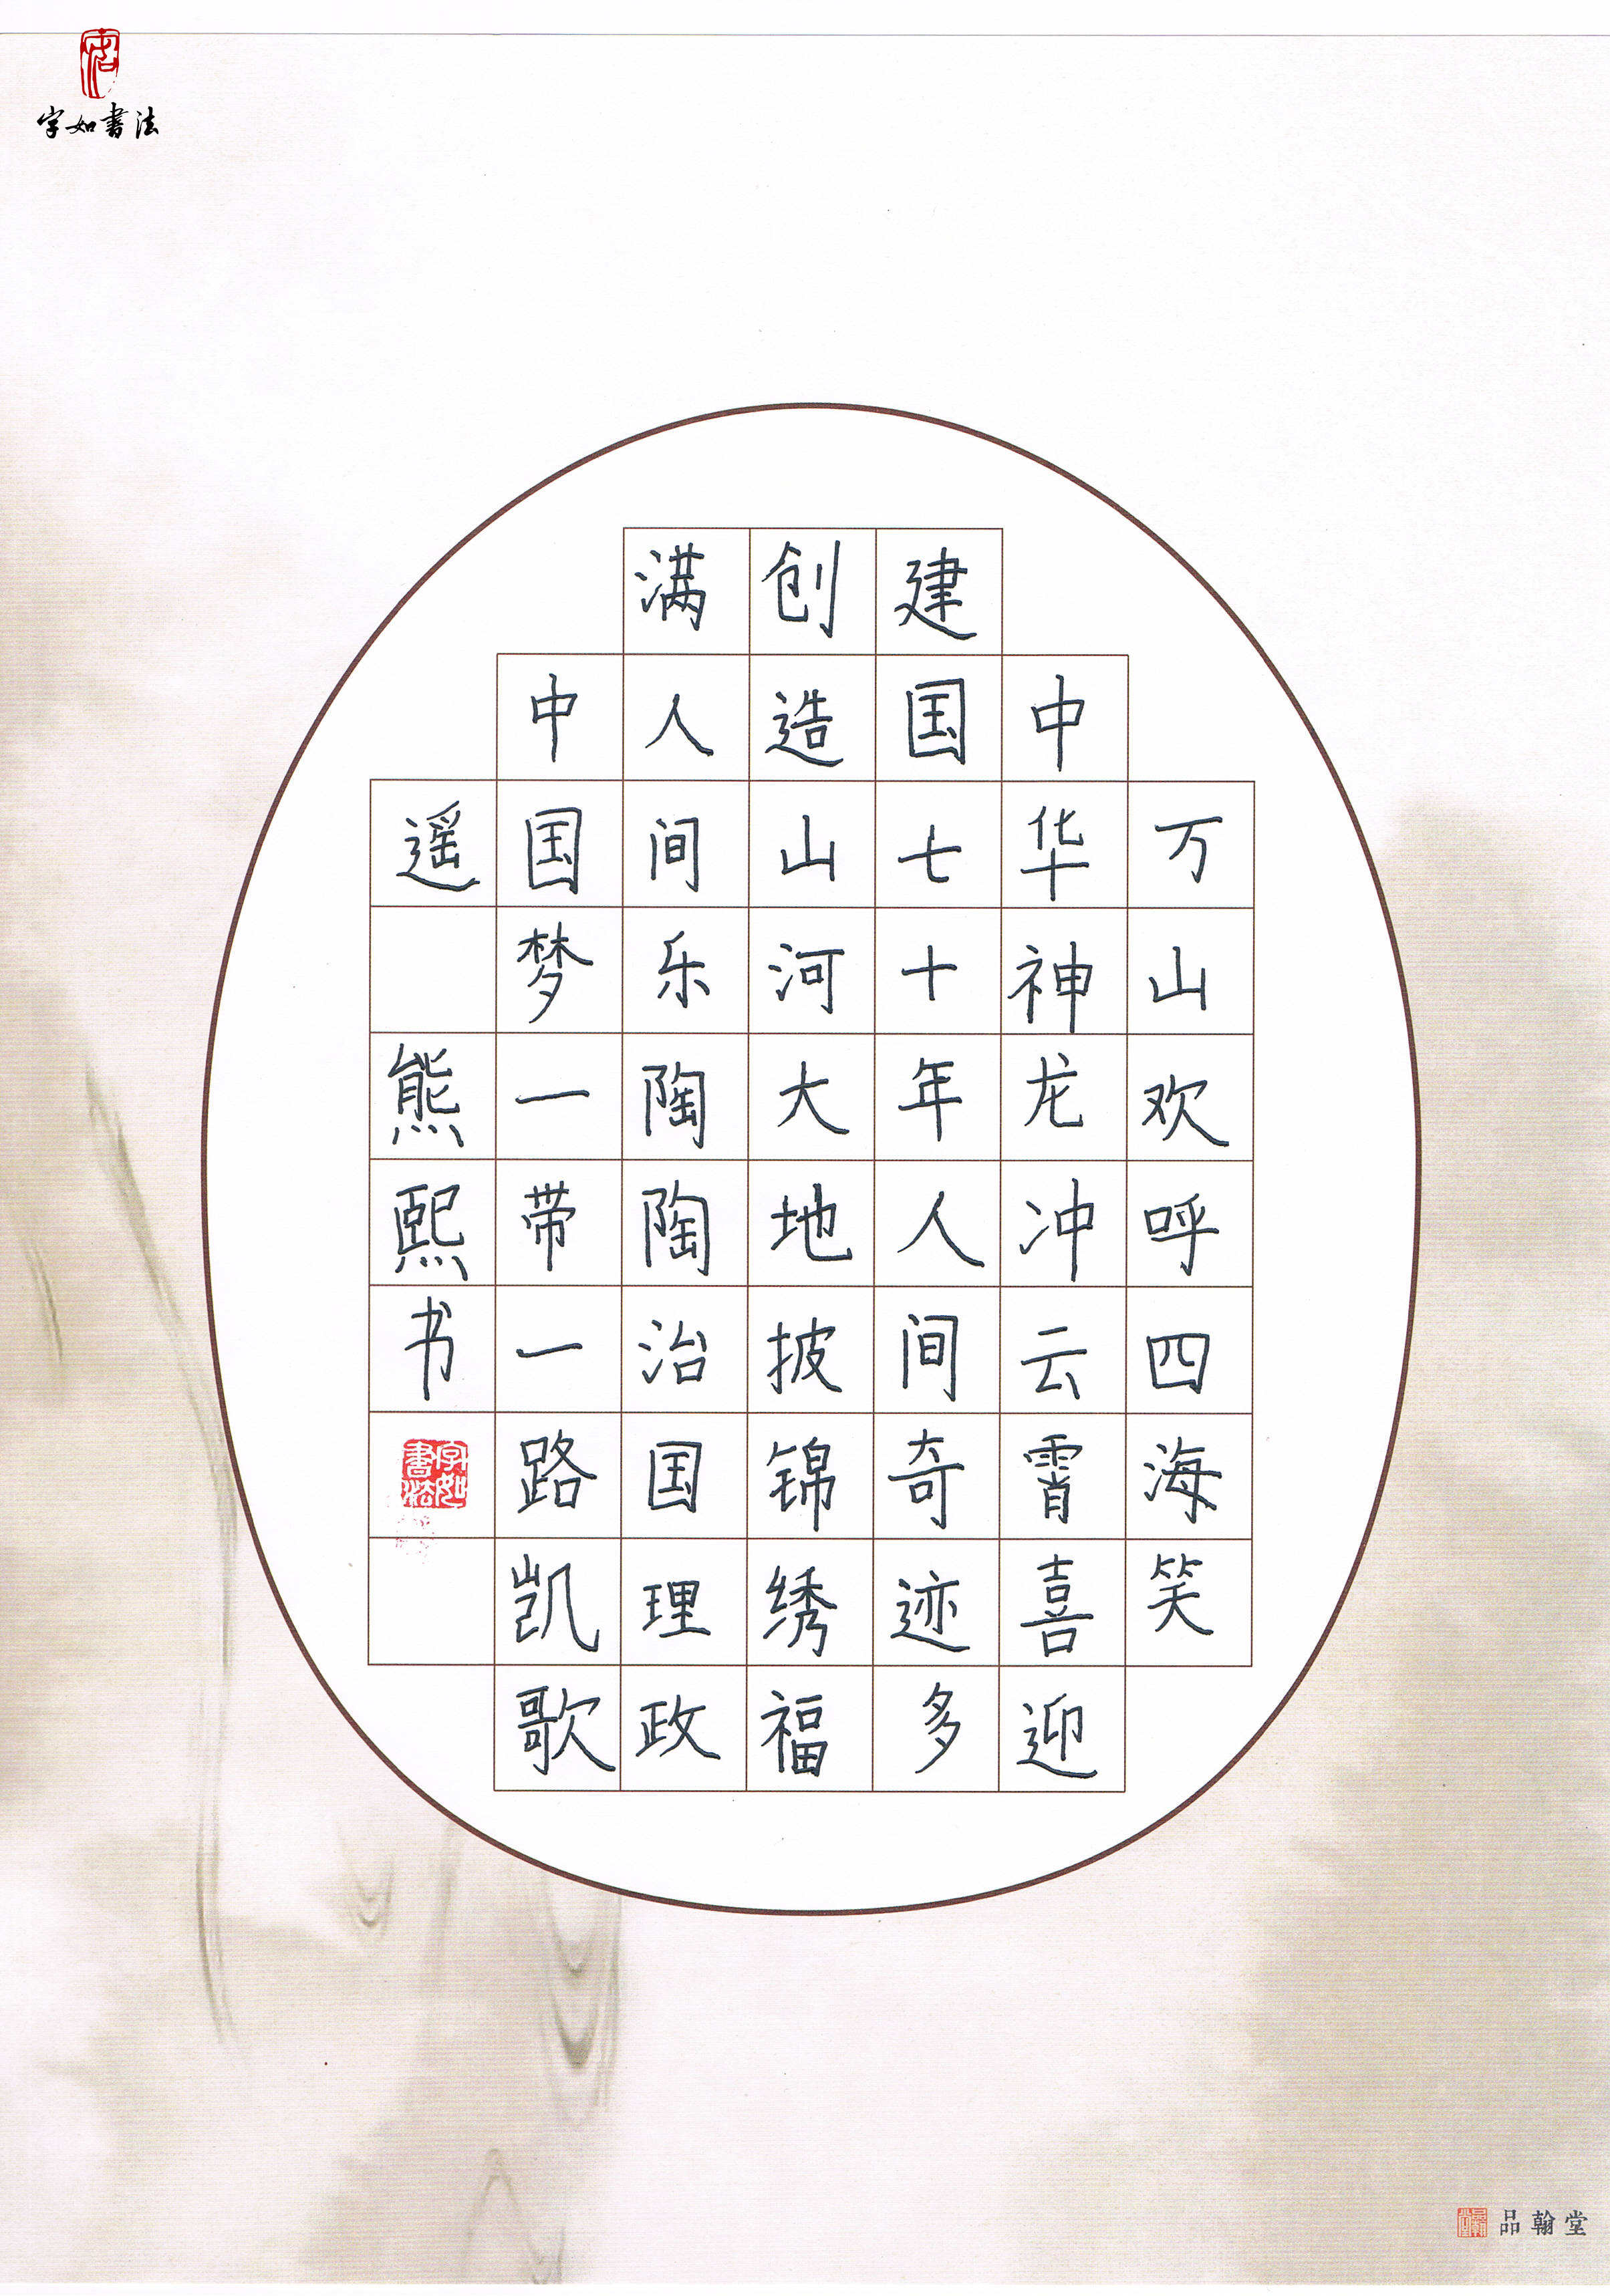 字如书法
万山欢呼四海笑
中华神龙冲云霄喜迎
建国七十年人间奇迹多
创造山河大地披锦绣福
满人间乐陶陶治国理政
中国梦一带一路凯歌
遥 熊熙书
字如書法
品翰堂